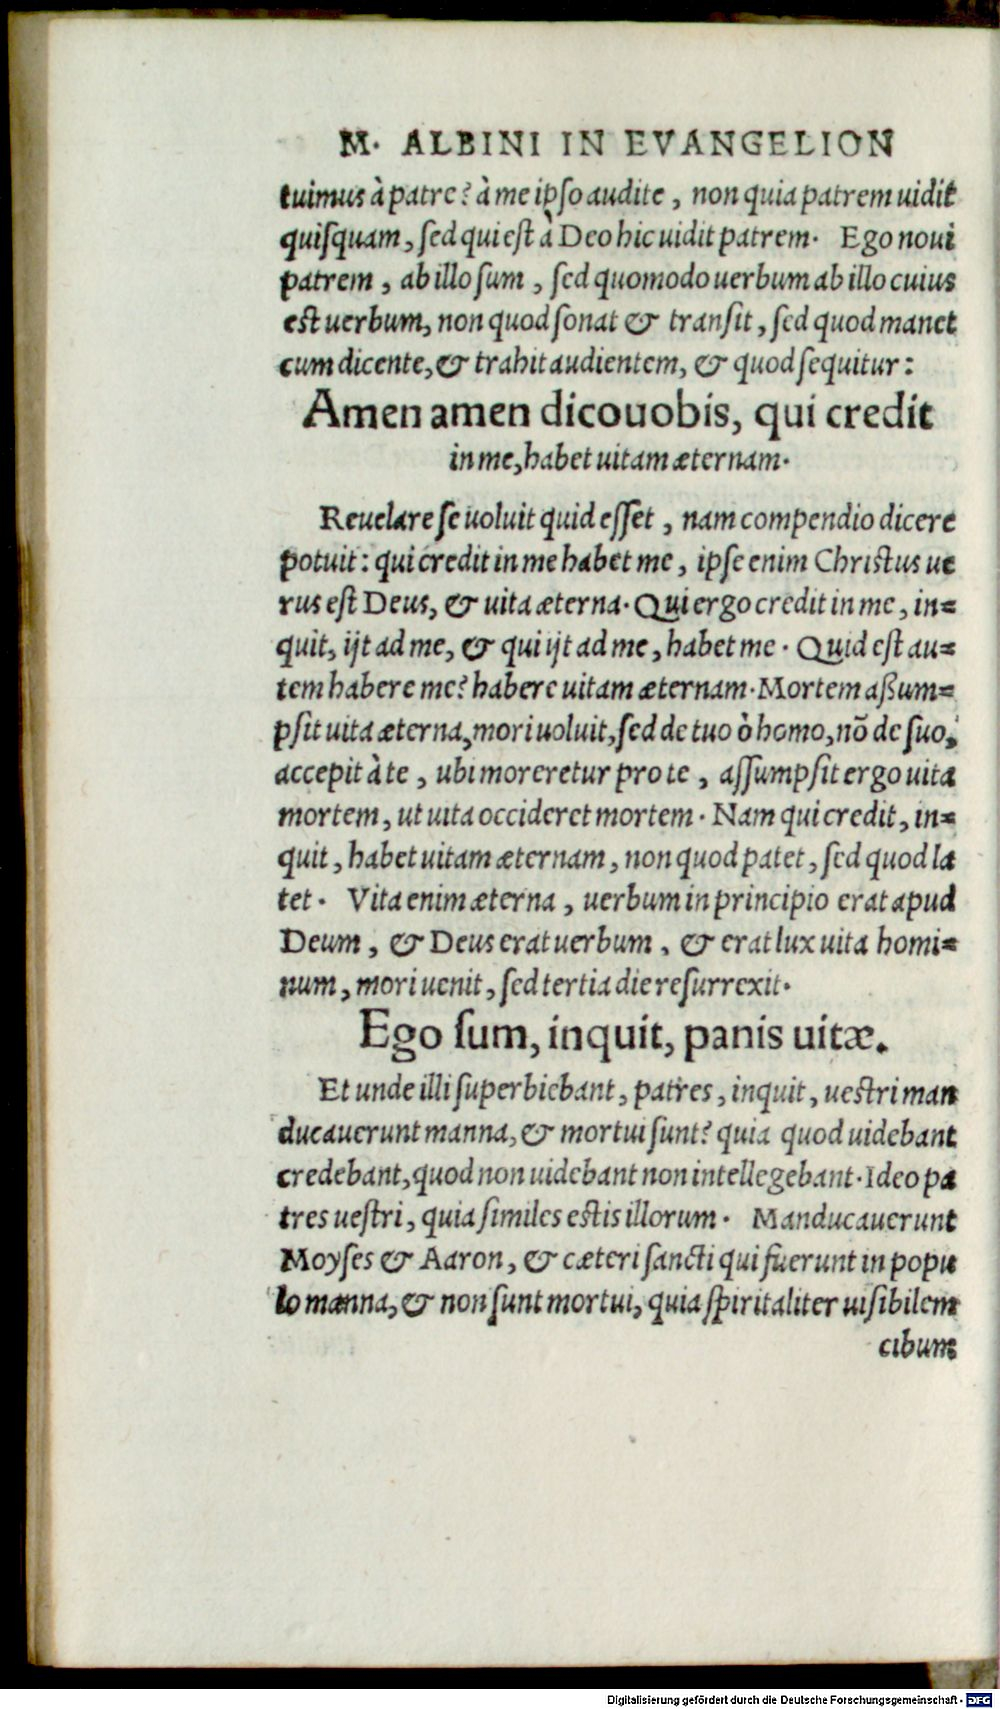 M. ALBINI IN EVANGELION
tuimus à patre? à me ipso audite, non quia patrem uidit
quisquam, sed qui est à Deo hic uidit patrem. Ego noui
patrem, ab illo sum, sed quomodo uerbum ab illo cuius
est uerbum, non quod sonat & transit, sed quod manet
cum dicente, & trahit audientem, & quod sequitur:
Amen amen dico uobis, qui credit
in me, habet uitam æternam.
Reuelare se uoluit quid esset, nam compendio dicere
potuit: qui credit in me habet me, ipse enim Christus ue
rus est Deus, & uita æterna. Qui ergo credit in me, in=
quit, ijt ad me, & qui ijt ad me, habet me. Quid est au=
tem habere me? habere uitam æternam. Mortem aßum=
psit uita æterna, mori uoluit, sed de tuo ò homo, nõ de suo,
accepit à te, ubi moreretur pro te, assumpsit ergo uita
mortem, ut uita occideret mortem. Nam qui credit, in=
quit, habet uitam æternam, non quod patet, sed quod la
tet. Vita enim æterna, uerbum in principio erat apud
Deum, & Deus erat uerbum, & erat lux uita homi=
num, mori uenit, sed tertia die resurrexit.
Ego sum, inquit, panis uitæ.
Et unde illi superbiebant, patres, inquit, uestri man
ducauerunt manna, & mortui sunt? quia quod uidebant
credebant, quod non uidebant non intellegebant. Ideo pa
tres uestri, quia similes estis illorum. Manducauerunt
Moyses & Aaron, & cæteri sancti qui fuerunt in popu
lo manna, & non sunt mortui, quia spiritaliter uisibilem
cibum
Digitalisierung gefördert durch die Deutsche Forschungsgemeinschaft - DFG